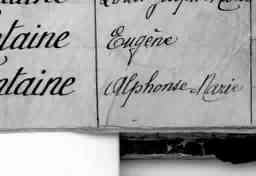 ntaine Eugène
ntaine Alphonse-Marie